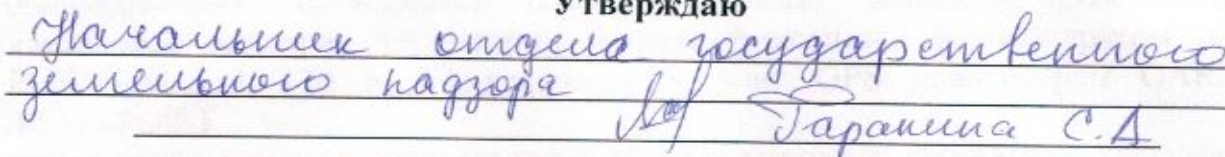 Утверждаю
Начальник отдела государственного
земельного надзора
Гаранина С.А